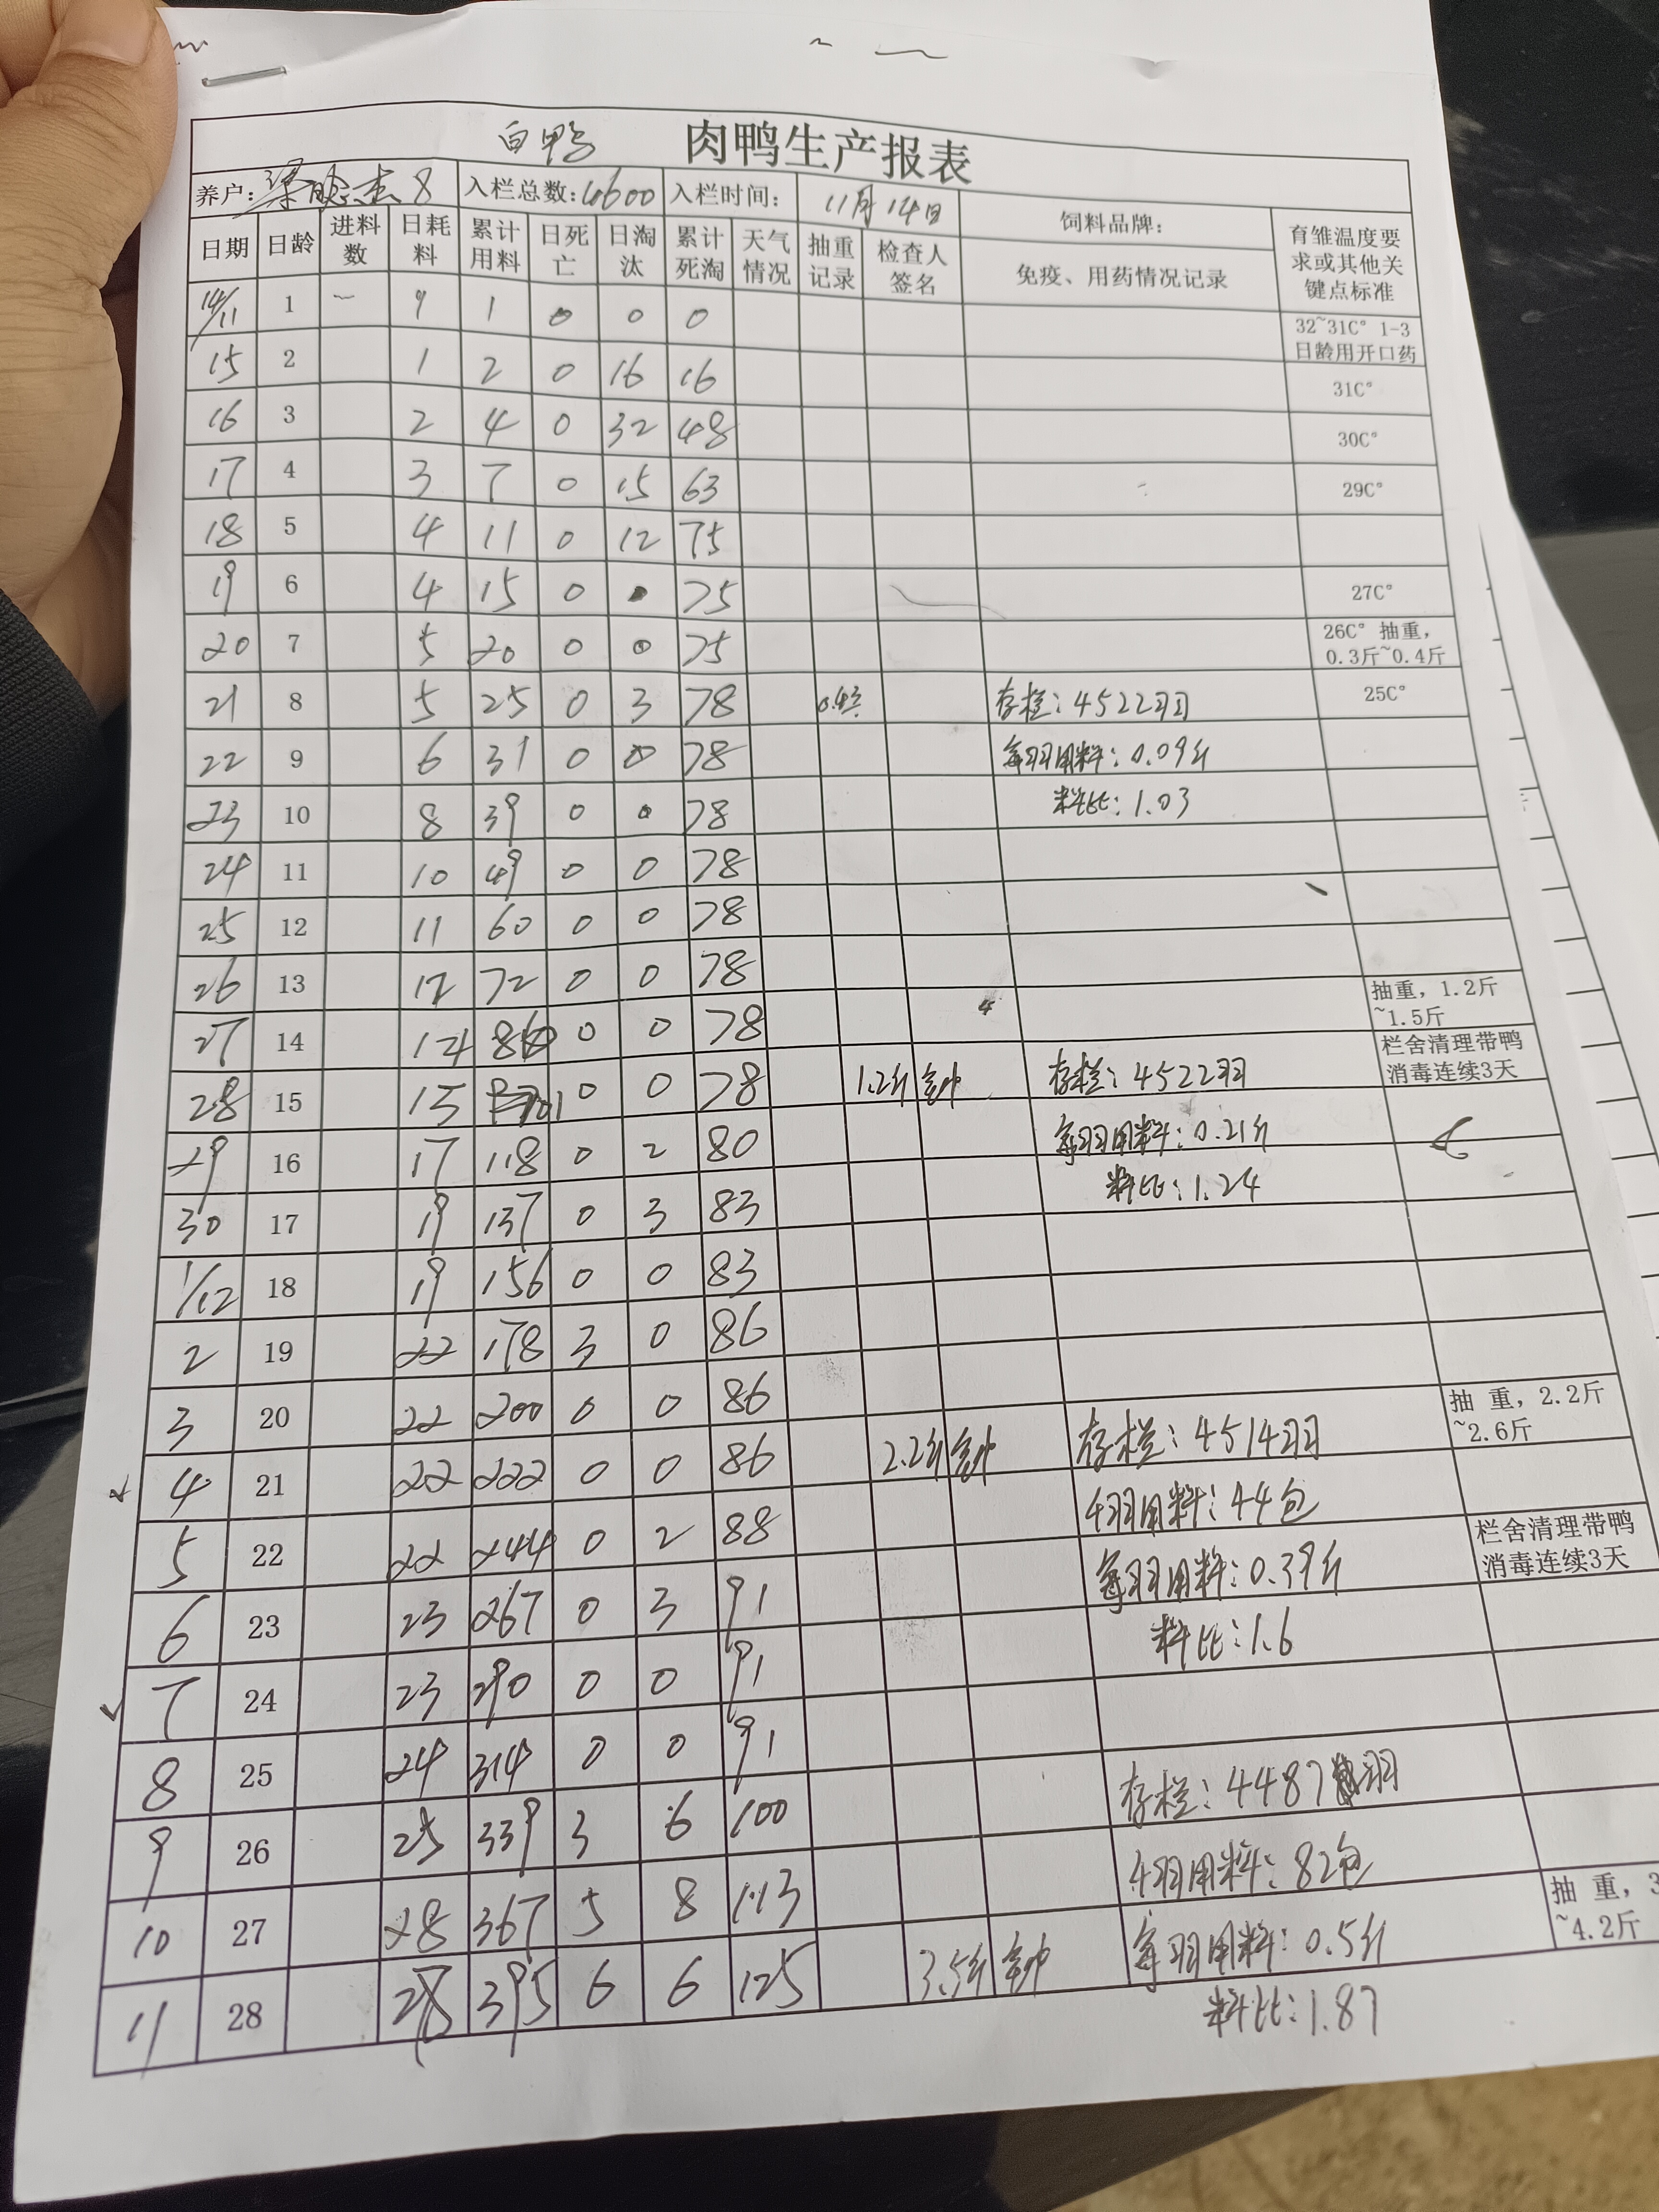 白鸭 肉鸭生产报表
养户: 8 入栏总数:4600 入栏时间: 11月14日 饲料品牌: 育雏温度要求或其他关键点标准
日期 日龄 进料数 日耗料 累计用料 日死亡 日淘汰 累计死淘 天气情况 抽重记录 检查人签名 免疫、用药情况记录
14/11 1 1 1 0 0 0 32~31C° 1-3日龄用开口药
15 2 1 2 0 16 16 31C°
16 3 2 4 0 32 48 30C°
17 4 3 7 0 15 63 29C°
18 5 4 11 0 12 75
19 6 4 15 0 0 75 27C°
20 7 5 20 0 0 75 26C° 抽重，0.3斤~0.4斤
21 8 5 25 0 3 78 存栏:4522羽 25C°
22 9 6 31 0 0 78 每羽用料:0.09斤
23 10 8 39 0 0 78 料比:1.03
24 11 10 49 0 0 78
25 12 11 60 0 0 78
26 13 12 72 0 0 78 抽重，1.2斤~1.5斤
27 14 14 86 0 0 78 栏舍清理带鸭消毒连续3天
28 15 15 101 0 0 78 1.2斤 存栏:4522羽
29 16 17 118 0 2 80 每羽用料:0.21斤
30 17 19 137 0 3 83 料比:1.24
1/12 18 19 156 0 0 83
2 19 22 178 3 0 86
3 20 22 200 0 0 86 抽 重，2.2斤~2.6斤
4 21 22 222 0 0 86 2.2斤 存栏:4514羽
5 22 22 244 0 2 88 4羽用料:44包 栏舍清理带鸭消毒连续3天
6 23 23 267 0 3 91 每羽用料:0.39斤
7 24 23 290 0 0 91 料比:1.6
8 25 24 314 0 0 91
9 26 25 339 3 6 100 存栏:4487羽
10 27 28 367 5 8 113 4羽用料:82包 抽 重，3
~4.2斤
11 28 28 395 6 6 125 3.5斤 每羽用料:0.5斤
料比:1.87